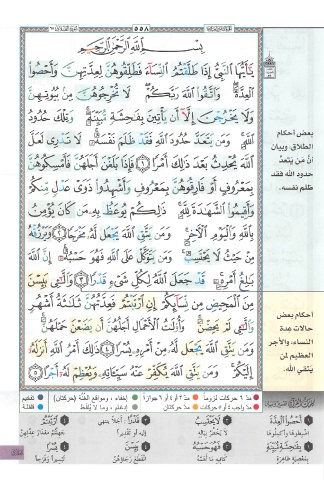 ٥٥٨
بِسْمِ اللَّهِ الرَّحْمَٰنِ الرَّحِيمِ
يَا أَيُّهَا النَّبِيُّ إِذَا طَلَّقْتُمُ النِّسَاءَ فَطَلِّقُوهُنَّ لِعِدَّتِهِنَّ وَأَحْصُوا
الْعِدَّةَ وَاتَّقُوا اللَّهَ رَبَّكُمْ لَا تُخْرِجُوهُنَّ مِن بُيُوتِهِنَّ
وَلَا يَخْرُجْنَ إِلَّا أَن يَأْتِينَ بِفَاحِشَةٍ مُّبَيِّنَةٍ وَتِلْكَ حُدُودُ
اللَّهِ وَمَن يَتَعَدَّ حُدُودَ اللَّهِ فَقَدْ ظَلَمَ نَفْسَهُ لَا تَدْرِي لَعَلَّ
اللَّهَ يُحْدِثُ بَعْدَ ذَٰلِكَ أَمْرًا ١ فَإِذَا بَلَغْنَ أَجَلَهُنَّ فَأَمْسِكُوهُنَّ
بِمَعْرُوفٍ أَوْ فَارِقُوهُنَّ بِمَعْرُوفٍ وَأَشْهِدُوا ذَوَيْ عَدْلٍ مِّنكُمْ
وَأَقِيمُوا الشَّهَادَةَ لِلَّهِ ذَٰلِكُمْ يُوعَظُ بِهِ مَن كَانَ يُؤْمِنُ
بِاللَّهِ وَالْيَوْمِ الْآخِرِ وَمَن يَتَّقِ اللَّهَ يَجْعَل لَّهُ مَخْرَجًا ٢ وَيَرْزُقْهُ
مِنْ حَيْثُ لَا يَحْتَسِبُ وَمَن يَتَوَكَّلْ عَلَى اللَّهِ فَهُوَ حَسْبُهُ إِنَّ اللَّهَ
بَالِغُ أَمْرِهِ قَدْ جَعَلَ اللَّهُ لِكُلِّ شَيْءٍ قَدْرًا ٣ وَاللَّائِي يَئِسْنَ
مِنَ الْمَحِيضِ مِن نِّسَائِكُمْ إِنِ ارْتَبْتُمْ فَعِدَّتُهُنَّ ثَلَاثَةُ أَشْهُرٍ
وَاللَّائِي لَمْ يَحِضْنَ وَأُولَاتُ الْأَحْمَالِ أَجَلُهُنَّ أَن يَضَعْنَ حَمْلَهُنَّ
وَمَن يَتَّقِ اللَّهَ يَجْعَل لَّهُ مِنْ أَمْرِهِ يُسْرًا ٤ ذَٰلِكَ أَمْرُ اللَّهِ أَنزَلَهُ
إِلَيْكُمْ وَمَن يَتَّقِ اللَّهَ يُكَفِّرْ عَنْهُ سَيِّئَاتِهِ وَيُعْظِمْ لَهُ أَجْرًا ٥
بعض أحكام
الطلاق، وبيان
أن من يتعدّ
حدود الله فقد
ظلم نفسه.
أحكام بعض
حالات عدة
النساء، والأجر
العظيم لمن
يتقي الله.
مدّ ٦ حركات لزوماً
مدّ ٢ أو ٤ أو ٦ جوازاً
إخفاء، ومواقع الغُنّة (حركتان)
تفخيم
مدّ واجب ٤ أو ٥ حركات
مدّ حركتان
إدغام، وما لا يُلفظ
قلقلة